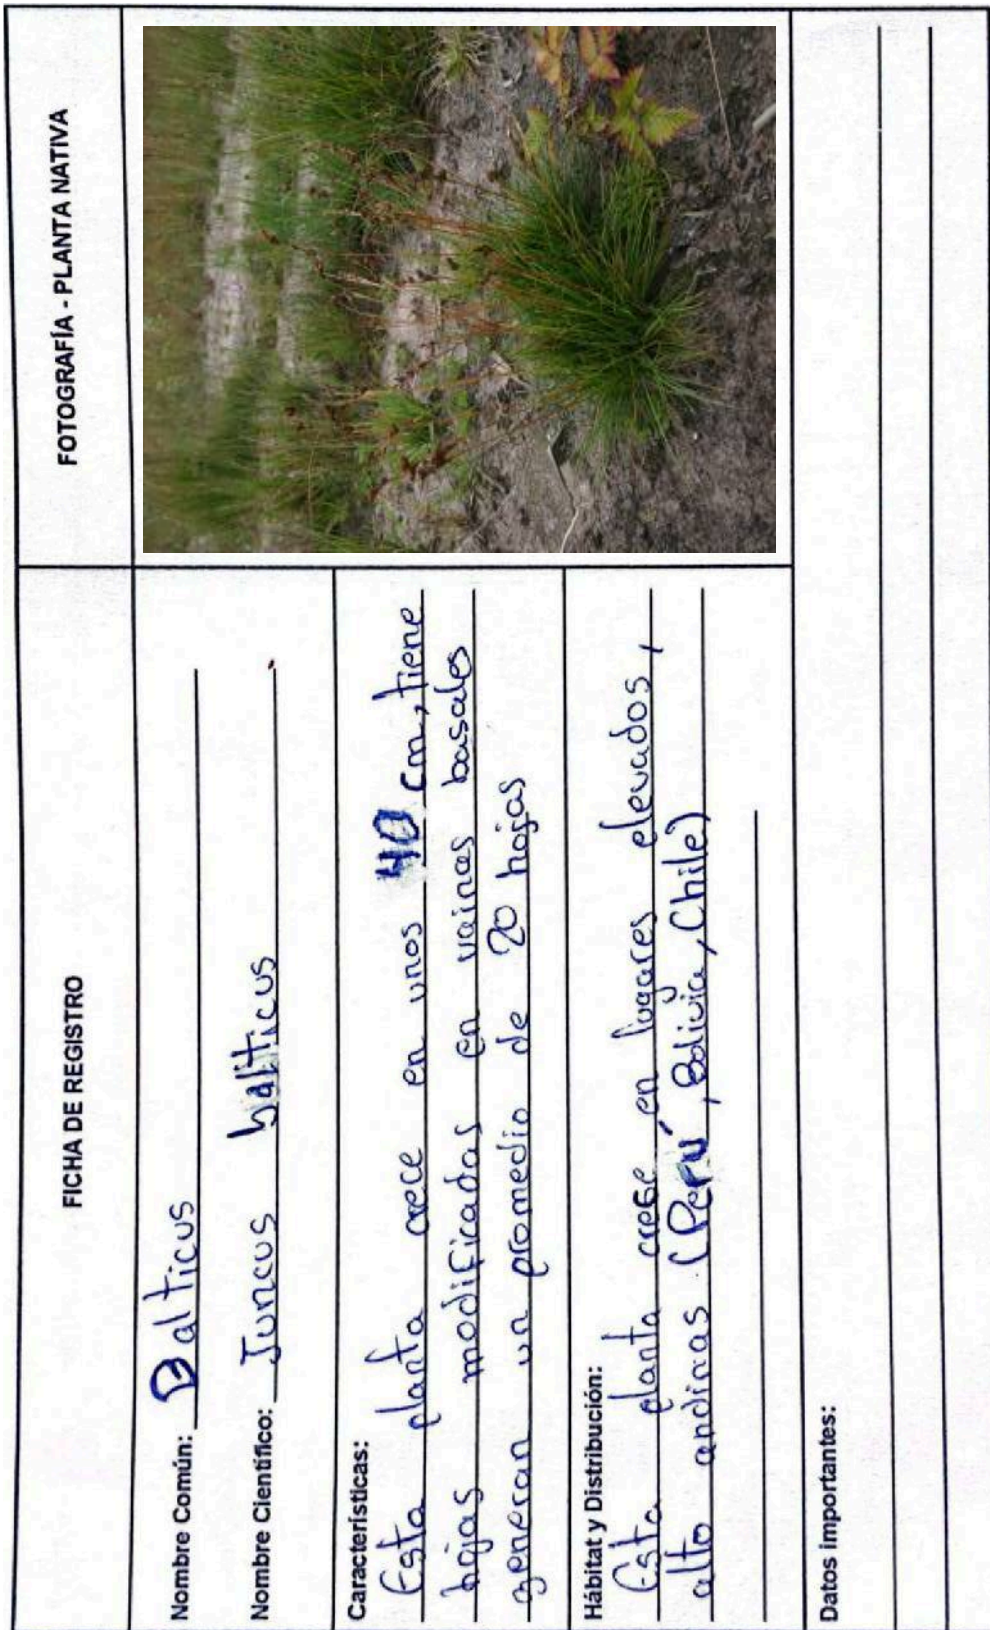 FICHA DE REGISTRO
FOTOGRAFÍA - PLANTA NATIVA
Nombre Común: Balticus
Nombre Científico: Juncus balticus.
Características:
Esta planta crece en unos 40 cm, tiene
hojas modificadas en vainas basales
generan un promedio de 20 hojas
Hábitat y Distribución:
Esta planta crese en lugares elevados,
alto andinas (Perú, Bolivia, Chile)
Datos importantes: